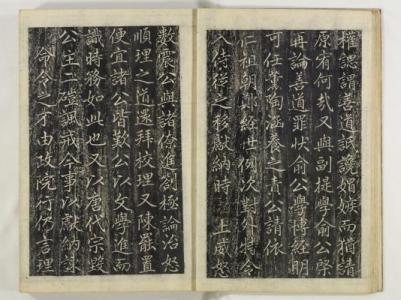 權認謂善道誠讒媢嫉而猶請
原宥何哉又與副提學俞公棨
再論善道罪狀俞公學博經明
可任薰陶涵養之責公請依
仁祖朝鄭經世例次對外特令
入侍筵之移獻納時 上威怒
數震公與諸僚進劄極論治怒
順理之道遂拜校理又陳罷置
便宜諸公皆歎公以文學進而
識時務如此也又以唐代宗毀
公主二磑諷戒今事以獻納疎
命令之才由政院行仍言理